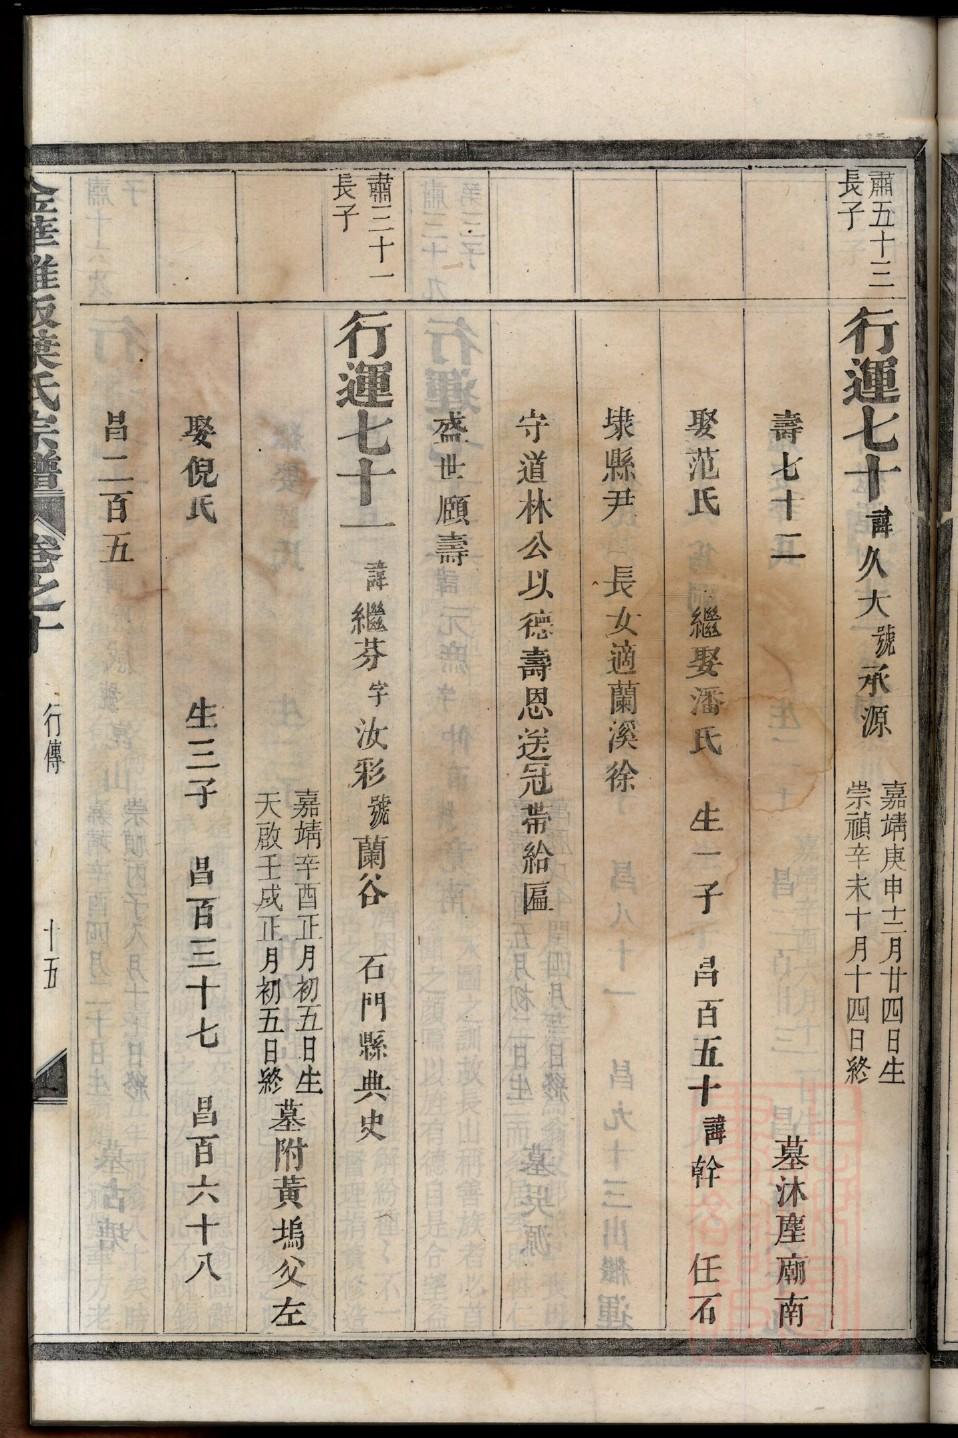 肅五十三
長子
行運七十 諱久大號承源 嘉靖庚申十二月廿四日生
崇禎辛未十月十四日終
壽七十二 墓沐塵廟南
娶范氏 繼娶潘氏 生一子 昌百五十諱幹 任石
埭縣尹 長女適蘭溪徐
守道林公以德壽恩送冠帶給匾
盛世願壽
肅三十一
長子
行運七十一 諱繼芬字汝彩號蘭谷 石門縣典史
嘉靖辛酉正月初五日生
天啟壬戌正月初五日終
墓附黃塢父左
娶倪氏 生三子 昌百三十七 昌百六十八
昌二百五
葉氏宗譜 卷之十 行傳 十五